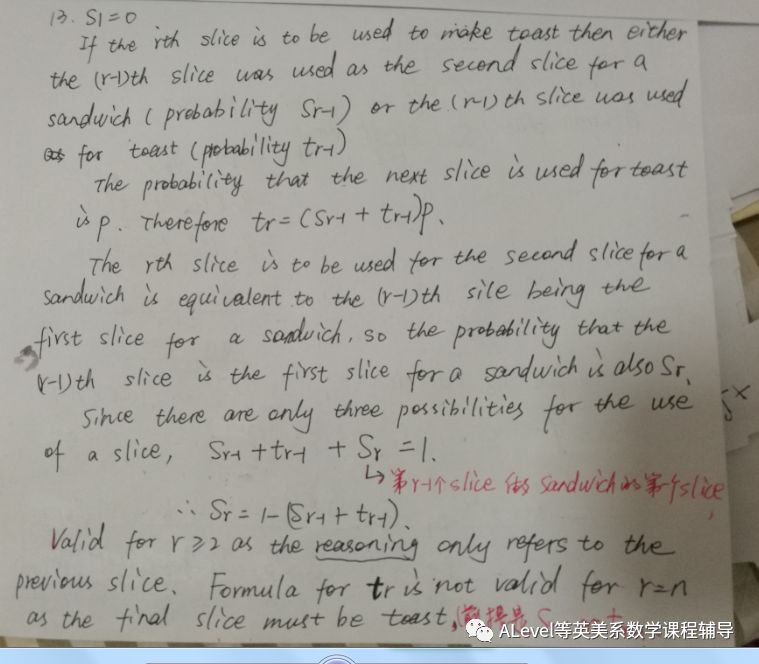 13. S1=0
If the rth slice is to be used to make toast then either
the (r-1)th slice was used as the second slice for a
sandwich ( probability Sr-1) or the (r-1)th slice was used
for toast (probability tr-1)
The probability that the next slice is used for toast
is p. Therefore tr=(Sr-1+tr-1)p.
The rth slice is to be used for the second slice for a
sandwich is equivalent to the (r-1)th slie being the
first slice for a sandwich, so the probability that the
(r-1)th slice is the first slice for a sandwich is also Sr.
Since there are only three possibilities for the use
of a slice, Sr-1+tr-1+Sr=1.
↳第r-1个slice 做 sandwich的第一个slice
∴ Sr=1-(Sr-1+tr-1).
Valid for r≥2 as the reasoning only refers to the
previous slice. Formula for tr is not valid for r=n
as the final slice must be toast.
5x
ALevel等英美系数学课程辅导